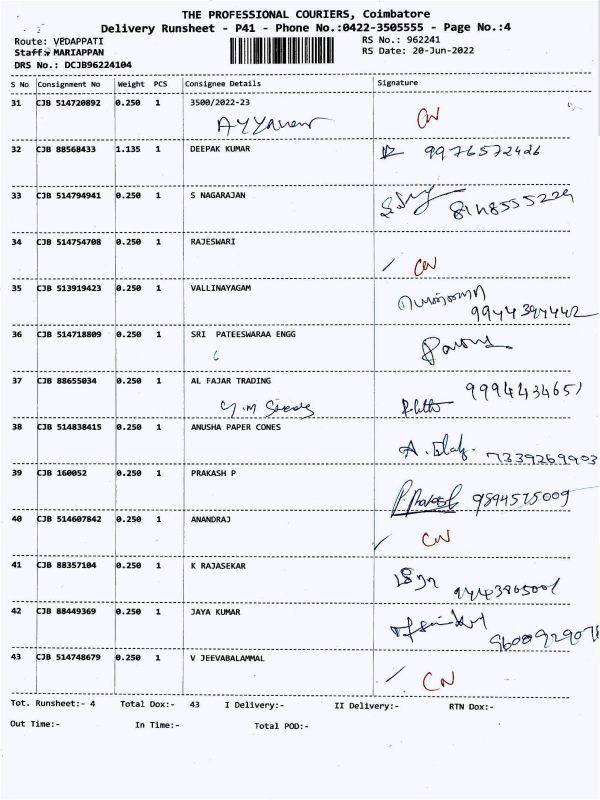 THE PROFESSIONAL COURIERS, Coimbatore
Delivery Runsheet - P41 - Phone No.:0422-3505555 - Page No.:4
Route: VEDAPPATI
RS No.: 962241
Staff: MARIAPPAN
RS Date: 20-Jun-2022
DRS No.: DCJB96224104
S No Consignment No Weight PCS Consignee Details Signature
31 CJB 514720892 0.250 1 3500/2022-23
CN
32 CJB 88568433 1.135 1 DEEPAK KUMAR 9976572426
33 CJB 514794941 0.250 1 S NAGARAJAN
8148555229
34 CJB 514754708 0.250 1 RAJESWARI
CN
35 CJB 513919423 0.250 1 VALLINAYAGAM
9944394442
36 CJB 514718809 0.250 1 SRI PATEESWARAA ENGG
37 CJB 88655034 0.250 1 AL FAJAR TRADING 9994434651
38 CJB 514838415 0.250 1 ANUSHA PAPER CONES
7339269903
39 CJB 160052 0.250 1 PRAKASH P
P. Prakash 9894575009
40 CJB 514607842 0.250 1 ANANDRAJ
CN
41 CJB 88357104 0.250 1 K RAJASEKAR
42 CJB 88449369 0.250 1 JAYA KUMAR
43 CJB 514748679 0.250 1 V JEEVABALAMMAL
CN
Tot. Runsheet:- 4 Total Dox:- 43 I Delivery:- II Delivery:- RTN Dox:-
Out Time:- In Time:- Total POD:-